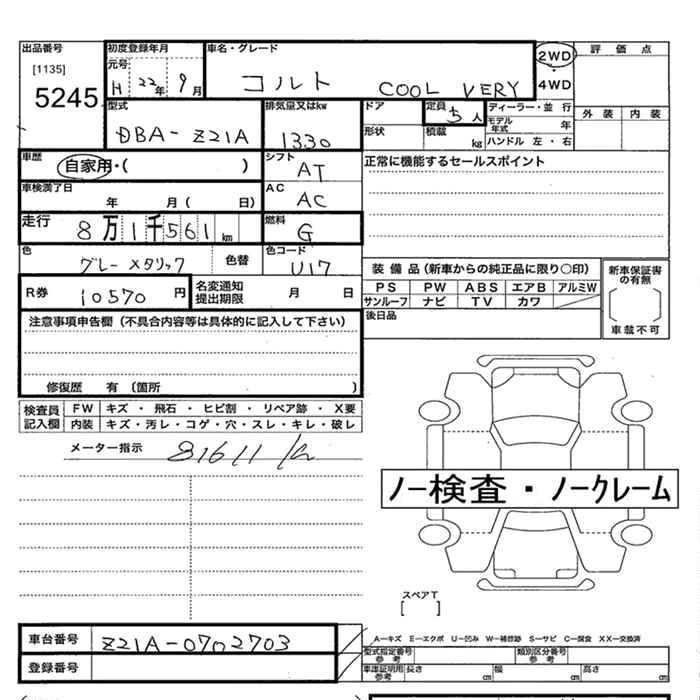 出品番号 初度登録年月 車名・グレード 2WD 評価点
[1135] 元号 H 22年 9月 コルト COOL VERY ・4WD
5245
型式 排気量又はkw ドア 定員 5人 ディーラー・並行 外装 内装
DBA-Z21A 1330 形状 積載 kg モデル年式 年
ハンドル 左・右
車歴 自家用・( ) シフト AT 正常に機能するセールスポイント
車検満了日 年 月( 日) AC AC
走行 8万1千561km 燃料 G
色 グレーメタリック 色替 色コード U17
装備品(新車からの純正品に限り○印) 新車保証書の有無
R券 10570円 名変通知提出期限 月 日 PS PW ABS エアB アルミW
サンルーフ ナビ TV カワ
車載不可
注意事項申告欄(不具合内容等は具体的に記入して下さい) 後日品
修復歴 有(箇所 )
検査員記入欄 FW キズ・飛石・ヒビ割・リペア跡・X要
内装 キズ・汚レ・コゲ・穴・スレ・キレ・破レ
メーター指示 81611 km
ノー検査・ノークレーム
スペアT
[ ]
車台番号 Z21A-0702703 A-キズ E-エクボ U-凹み W-補修跡 S-サビ C-腐食 XX-交換済
型式指定番号 参考 類別区分番号 参考
登録番号 車庫証明用 参考 長さ cm 幅 cm 高さ cm